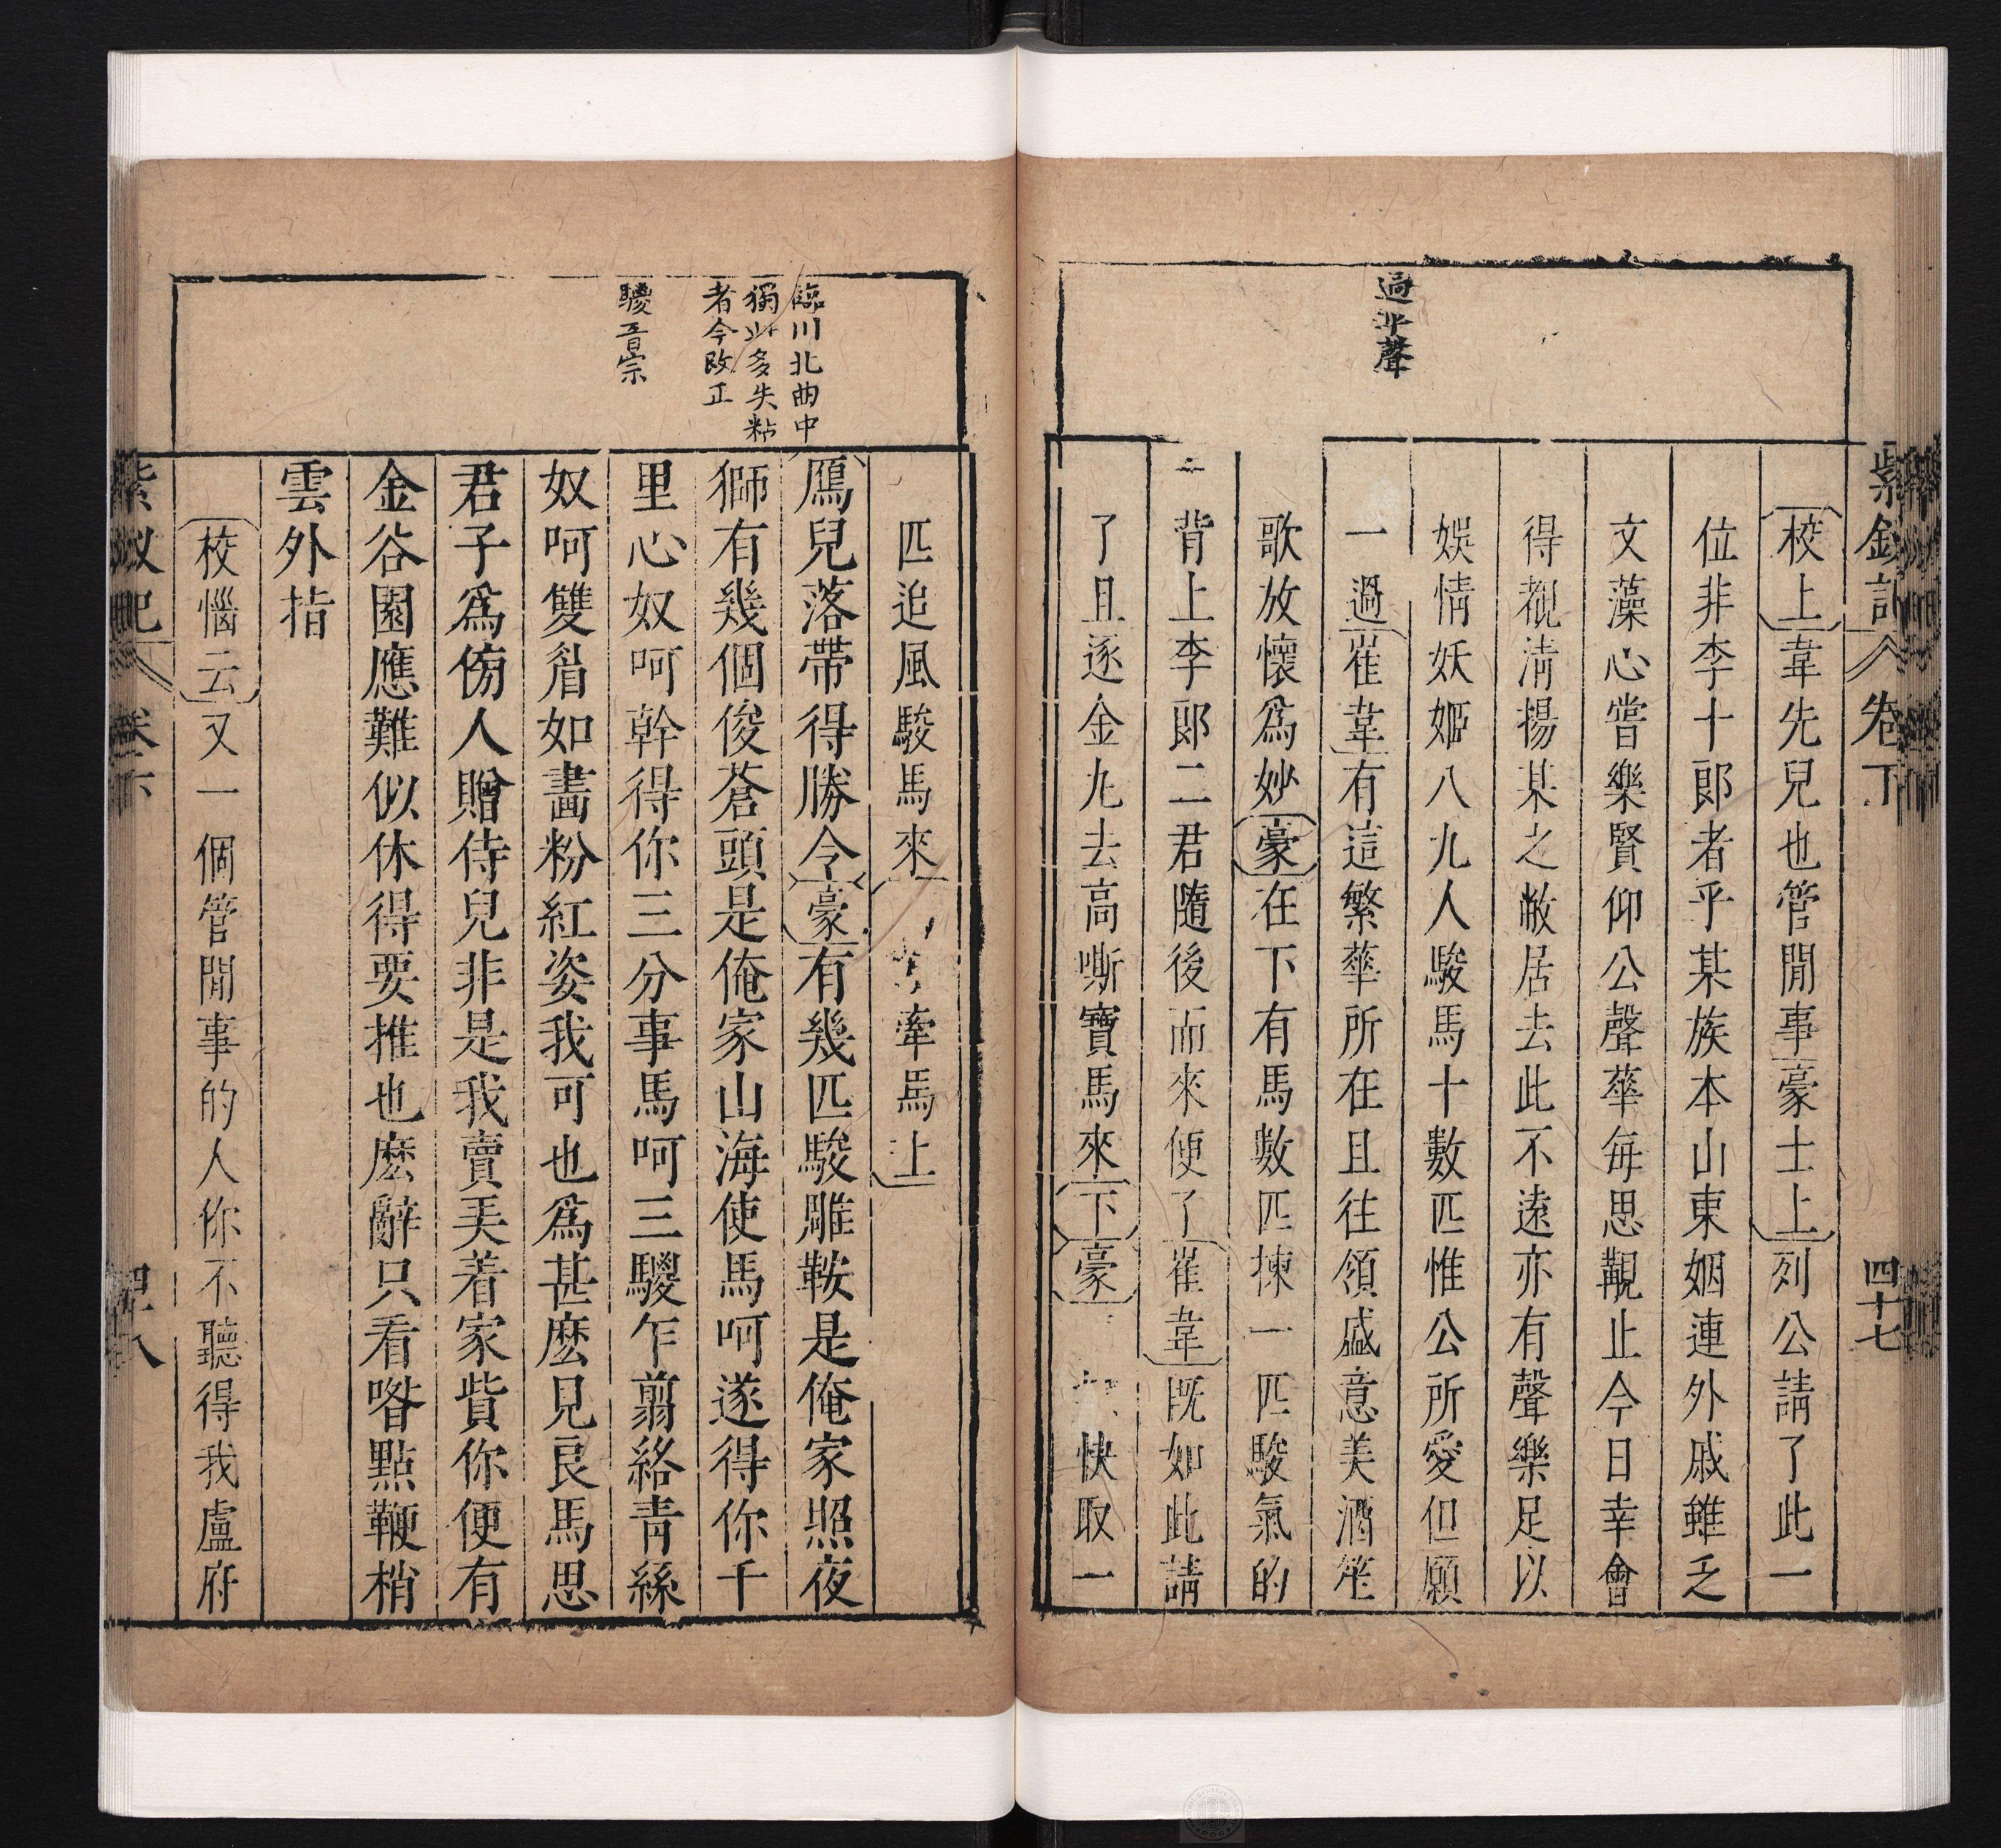 紫釵記 卷下 四十七
過平聲
校上韋先兒也管閒事豪士上列公請了此一
位非李十郎者乎某族本山東姻連外戚雖乏
文藻心嘗樂賢仰公聲華每思覯止今日幸會
得覩清揚某之敝居去此不遠亦有聲樂足以
娛情妖姬八九人駿馬十數匹惟公所愛但願
一過崔韋有這繁華所在且往領盛意美酒笙
歌放懷爲妙豪在下有馬數匹揀一匹駿氣的
背上李郎二君隨後而來便了崔韋既如此請
了且逐金丸去高嘶寶馬來下豪快取一
臨川北曲中
獨此多失粘
者今改正
騣音宗
匹追風駿馬來牽馬上
鴈兒落帶得勝令豪有幾匹駿雕鞍是俺家照夜
獅有幾個俊蒼頭是俺家山海使馬呵遂得你千
里心奴呵幹得你三分事馬呵三騣乍翦絡青絲
奴呵雙眉如畵粉紅姿我可也爲甚麼見良馬思
君子爲侽人贈侍兒非是我賣美着家貲你便有
金谷園應難似休得要推也麽辭只看喒點鞭梢
雲外指
校惱云又一個管閒事的人你不聽得我盧府
紫釵記 卷下 四十八